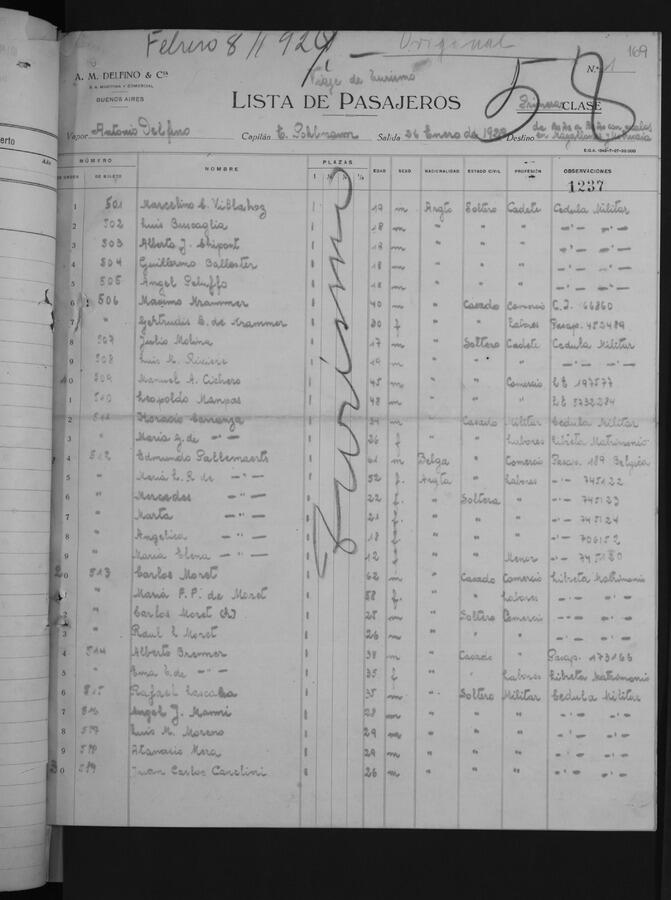 Febrero 8/1929 — Original
169
A. M. DELFINO & Cía
S. A. MARÍTIMA Y COMERCIAL
BUENOS AIRES
Viaje de Turismo
Nº 1
58
LISTA DE PASAJEROS
Primera CLASE
Vapor Antonio Delfino Capitán Salida 26 Enero de 1929 Destino de Bs As a Bs As con escalas en Magallanes y Ushuaia
NÚMERO DE ORDEN DE BOLETO NOMBRE PLAZAS 1 ½ ¼ ⅛ EDAD SEXO NACIONALIDAD ESTADO CIVIL PROFESIÓN OBSERVACIONES
1237
Turismo
1 501 Marcelino C. Villahoz 1 19 m Argto Soltero Cadete Cedula Militar
2 502 Luis Buscaglia 1 18 m " " " —"— "—
3 503 Alberto J. Chipont 1 19 m " " " —"— "—
4 504 Guillermo Ballester 1 18 m " " " —"— "—
5 505 Angel Peluffo 1 18 m " " " —"— "—
6 506 Maximo Krammer 1 40 m " Casado Comercio C.I. 66860
7 " Gertrudis E. de Krammer 1 30 f " " Labores Pasap. 453489
8 507 Julio Molina 1 17 m " Soltero Cadete Cedula Militar
9 508 Luis M. Riviere 1 19 m " " " —"— "—
10 509 Manuel A. Cichero 1 45 m " " Comercio L E 197577
1 510 Leopoldo Mampas 1 48 m " " " L E 5232284
2 511 Horacio Carranza 1 34 m " Casado Militar Cedula Militar
3 " Maria J. de —"— 1 26 f " " Labores Libreta Matrimonio
4 512 Edmundo 1 61 m Belga " Comercio Pasap. 189 Belgica
5 " Maria L. R. de —"— 1 52 f Argta " Labores —"— 745122
6 " Mercedes —"— 1 22 f " Soltera " —"— 745123
7 " Marta —"— 1 21 f " " " —"— 745124
8 " Angelica —"— 1 18 f " " " —"— 706152
9 " Maria Elena —"— 1 12 f " " Menor —"— 745180
20 513 Carlos Moret 1 62 m " Casado Comercio Libreta Matrimonio
1 " Maria P. P. de Moret 1 58 f " " Labores —"— "—
2 " Carlos Moret (h) 1 28 m " Soltero Comercio —"— "—
3 " Raul E. Moret 1 26 m " " " —"— "—
4 514 Alberto Bremer 1 38 m " Casado " Pasap. 173166
5 " Ema E. de —"— 1 35 f " " Labores Libreta Matrimonio
6 515 Rafael Lascalea 1 35 m " Soltero Militar Cedula Militar
7 516 Angel J. Manni 1 28 m " " " —"— "—
8 517 Luis M. Moreno 1 29 m " " " —"— "—
9 518 Atanasio Mera 1 29 m " " " —"— "—
30 519 Juan Carlos Canclini 1 26 m " " " —"— "—